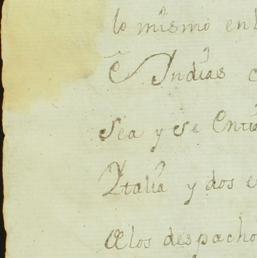 lo mismo en
Indias
sea y se
Ytalia y dos
a los despacho